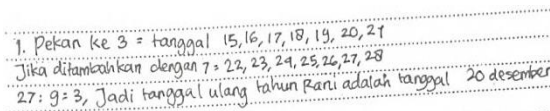 1. Pekan ke 3 = tanggal 15,16,17,18,19,20,21
Jika ditambahkan dengan 7 = 22,23,24,25,26,27,28
27:9=3, Jadi tanggal ulang tahun Rani adalah tanggal 20 desember